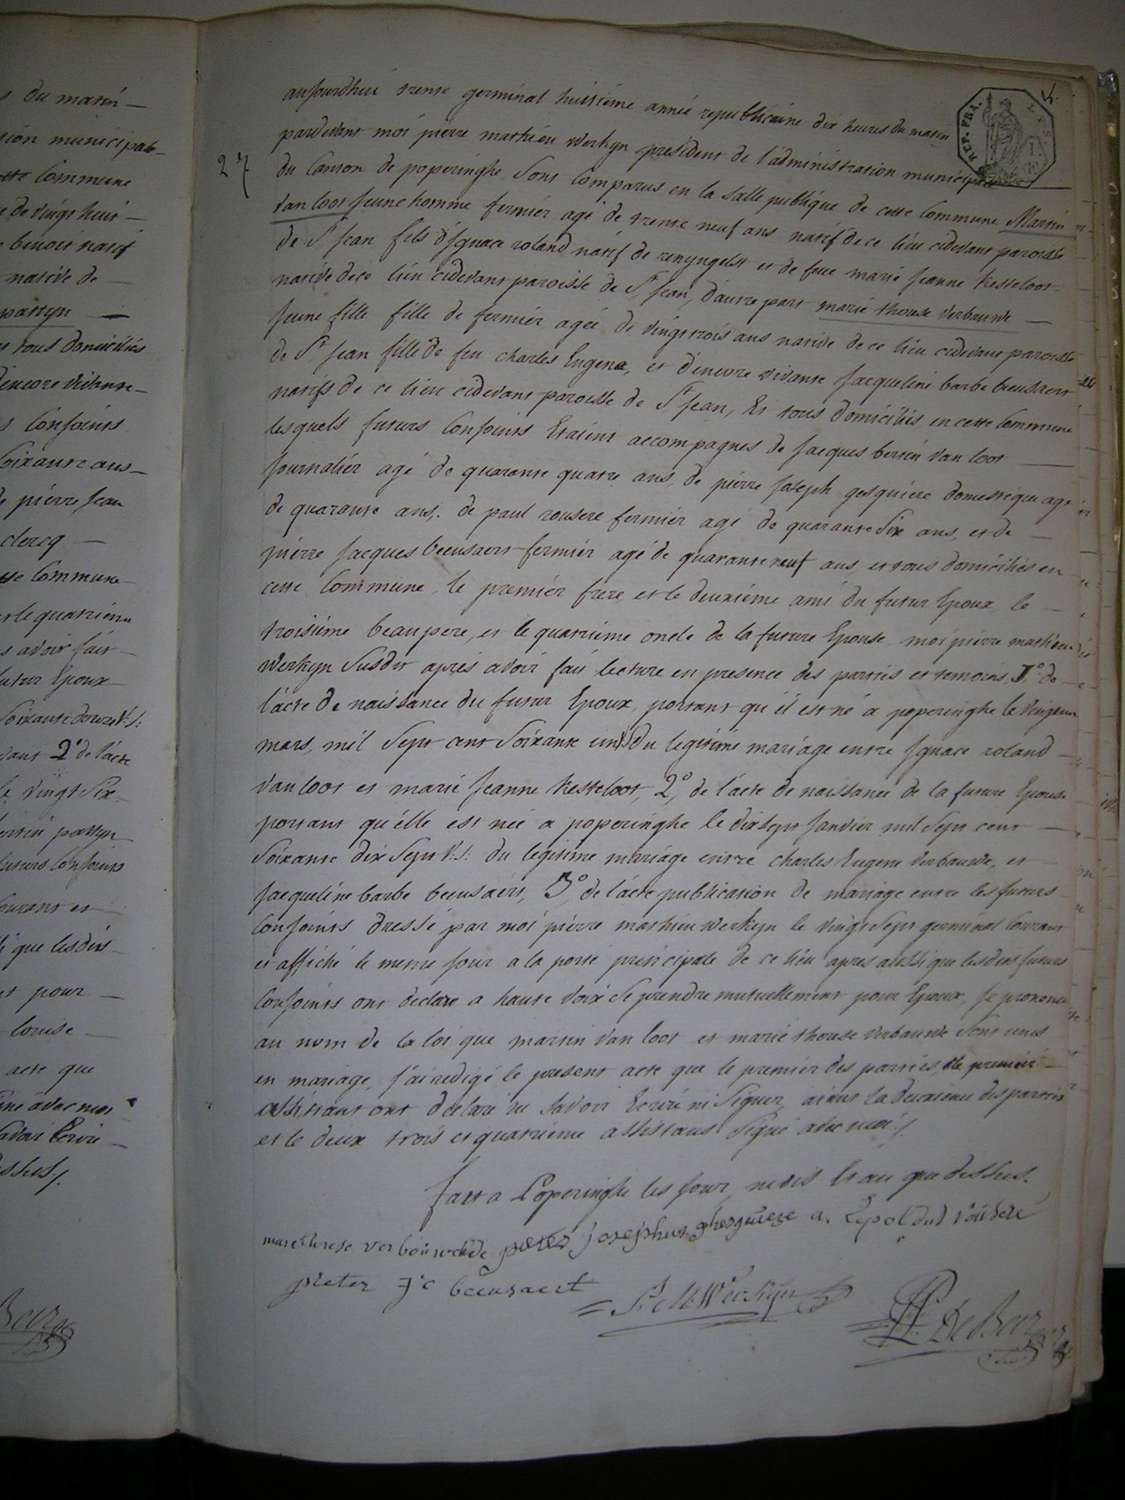 s du matin
tion municipale
cette Commune
e de vingt huit
benoit natif
native de
pattyn
et tous domiciliés
d'encore vivante
s Conjoints
Soixante ans
de pierre jean
clercq
cette Commune
et le quatrième
s avoir fait
futur Epoux
Soixante douze V.S:
2° de l'acte
le vingt Six
pattyn
futurs Conjoints
Courant et
si que lesdits
et pour
louise
acte que
signé avec moi
savoir Ecrire
dessus /.
De Beir
27
4
REP. FRA.
aujourdhui trente germinal huitiéme année republicaine dix heures du matin
pardevant moi pierre mathieu Werkyn president de l'administration municipale
du Canton de poperinghe Sont Comparus en la Salle publique de cette Commune Martin
van loot jeune homme fermier agé de trente neuf ans natif de ce lieu cidevant paroisse
de St jean fils d'Ignace roland natif de renyngelst et de feue marie jeanne Kesteloot
native de ce lieu cidevant paroisse de St jean, d'autre part marie therese verbauwde
jeune fille fille de fermier agée de vingt trois ans native de ce lieu cidevant paroisse
de St jean fille de feu charles Eugene, et d'encore vivante jacqueline barbe beeusaert
natifs de ce lieu cidevant paroisse de St jean, Et tous domiciliés en cette Commune
lesquels futurs Conjoints Etaient accompagnés de jacques van loot
journalier agé de quarante quatre ans, de pierre joseph gesquiere domestique agé
de quarante ans, de paul rousere fermier agé de quarante Six ans, et de
pierre jacques beeusaert fermier agé de quarante neuf ans, et tous domiciliés en
cette Commune, le premier frere, et le deuxiéme ami du futur Epoux le
troisiéme beaupere, et le quatriéme oncle de la future Epouse, moi pierre mathieu
Werkyn Susdit aprés avoir fait lecture en presence des parties et temoins, 1° de
l'acte de naissance du futur Epoux, portant qu'il est né a poperinghe le vingt un
mars, mil Sept cent Soixante un du legitime mariage entre Ignace roland
van loot et marie jeanne Kesteloot, 2°, de l'acte de naissance de la future Epouse
portant qu'élle est née a poperinghe le dix Sept janvier mil Sept cent
Soixante dix Sept V:S: du legitime mariage entre charles Eugene verbauwde, et
jacqueline barbe beeusaert, 3° de l'acte publication de mariage entre les futurs
Conjoints dressé par moi pierre mathieu werkyn le vingt Sept germinal Courant
et affiché le meme jour a la porte principale de ce lieu apres aussi que lesdits futurs
Conjoints ont declaré a haute voix Se prendre mutuellement pour Epoux, je prononce
au nom de la loi que martin van loot et marie therese verbauwde Sont unis
en mariage, j'ai redigé le present acte que le premier des parties le premier
assistant ont declaré ne Savoir Ecrire ni Signer, ainsi la deuxieme des parties
et le deux trois et quatriéme assistans Signé avec moi /.
fait a Poperinghe les jour, mois Et an que dessus.
marie therese verbouwede peter josephus ghesquiere a. Leopoldus rousere
pieter Jc beeusaert P. M Werkyn
De Beir